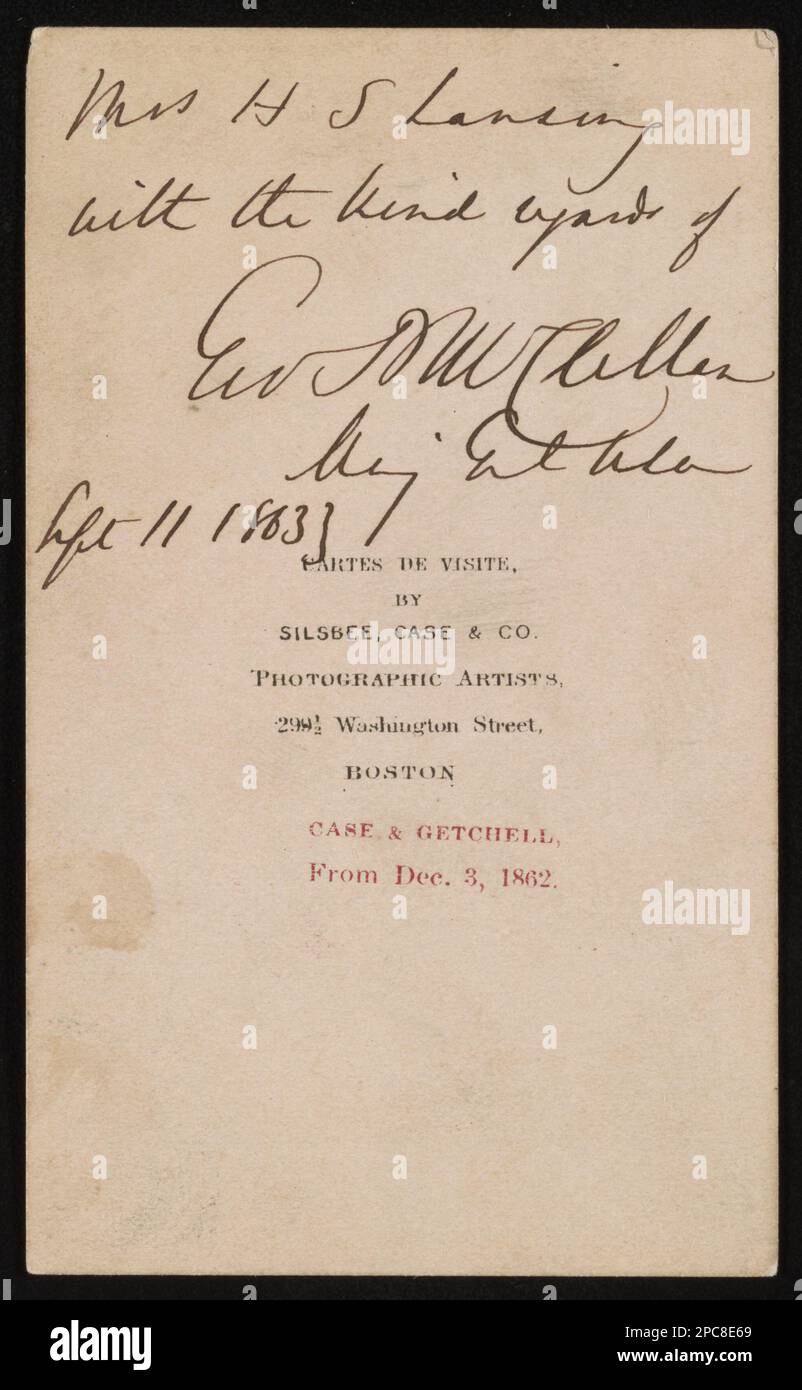 Mrs H S Lansing
with the kind regards of
Geo B McClellan
Maj Genl USA
Sept 11 1863
CARTES DE VISITE,
BY
SILSBEE, CASE & CO.
PHOTOGRAPHIC ARTISTS,
299½ Washington Street,
BOSTON
CASE & GETCHELL,
From Dec. 3, 1862.
alamy
Image ID: 2PC8E69
www.alamy.com